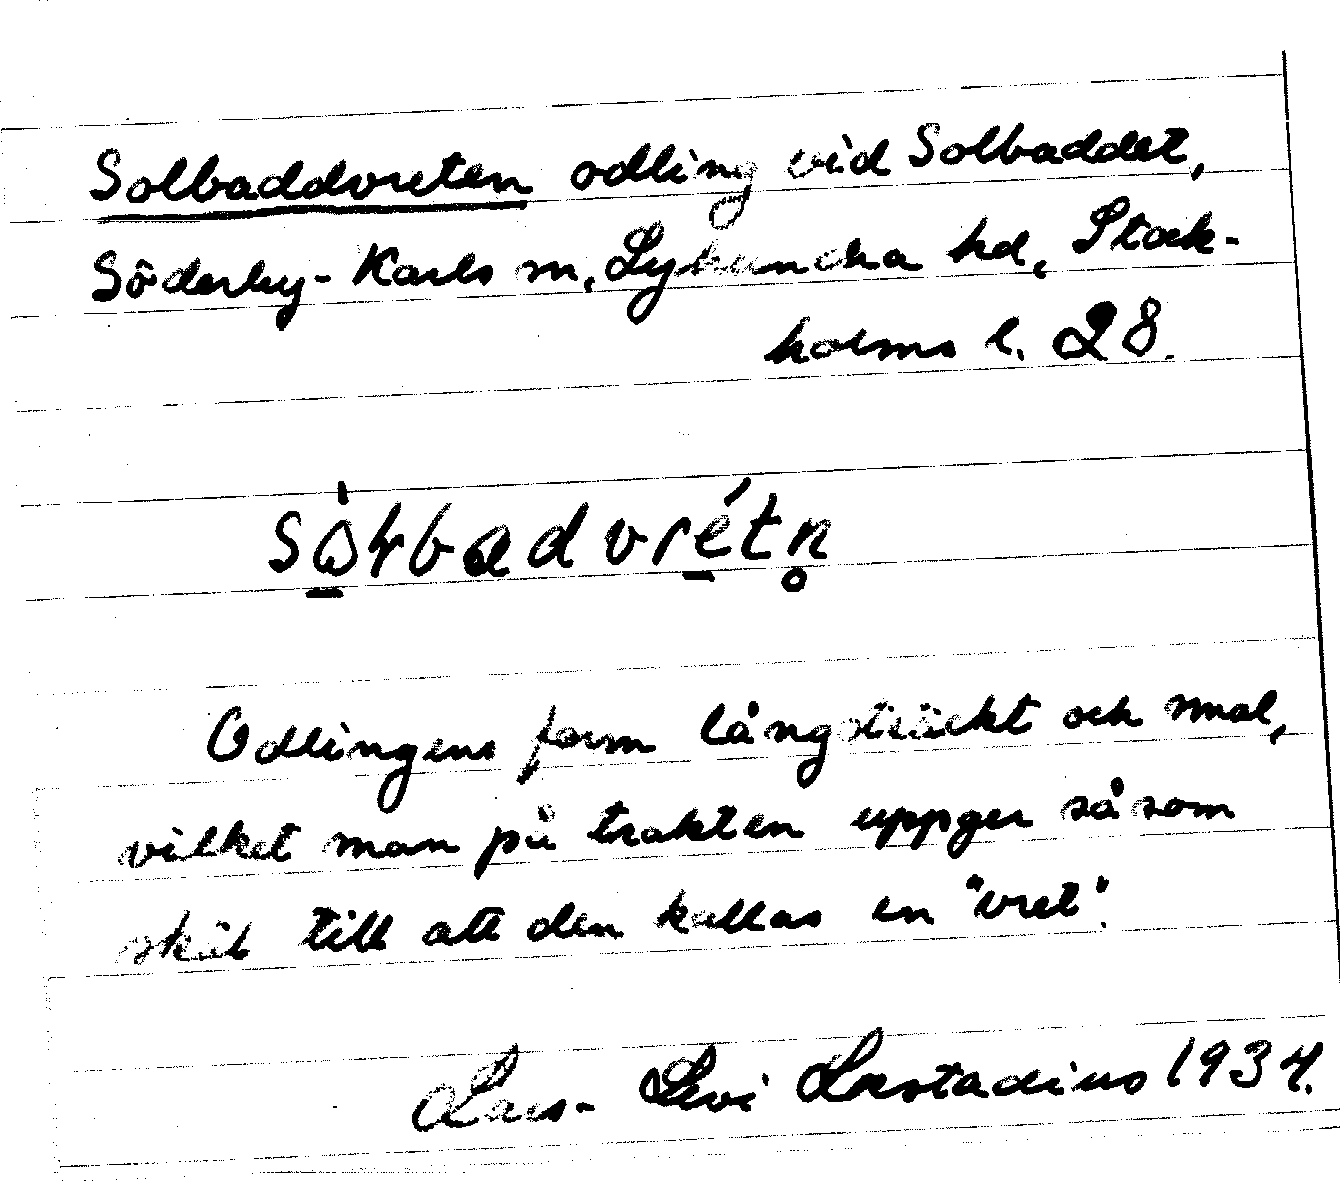 Solbaddvreten odling vid Solbaddet,
Söderby-Karls sn, Lyhundra hd, Stock-
holms l. 28.
sὰɫbadvrétn̥
Odlingens form långsträckt och smal,
vilket man på trakten uppger såsom
skäl till att den kallas en "vret".
Lars-Levi Læstadius 1934.